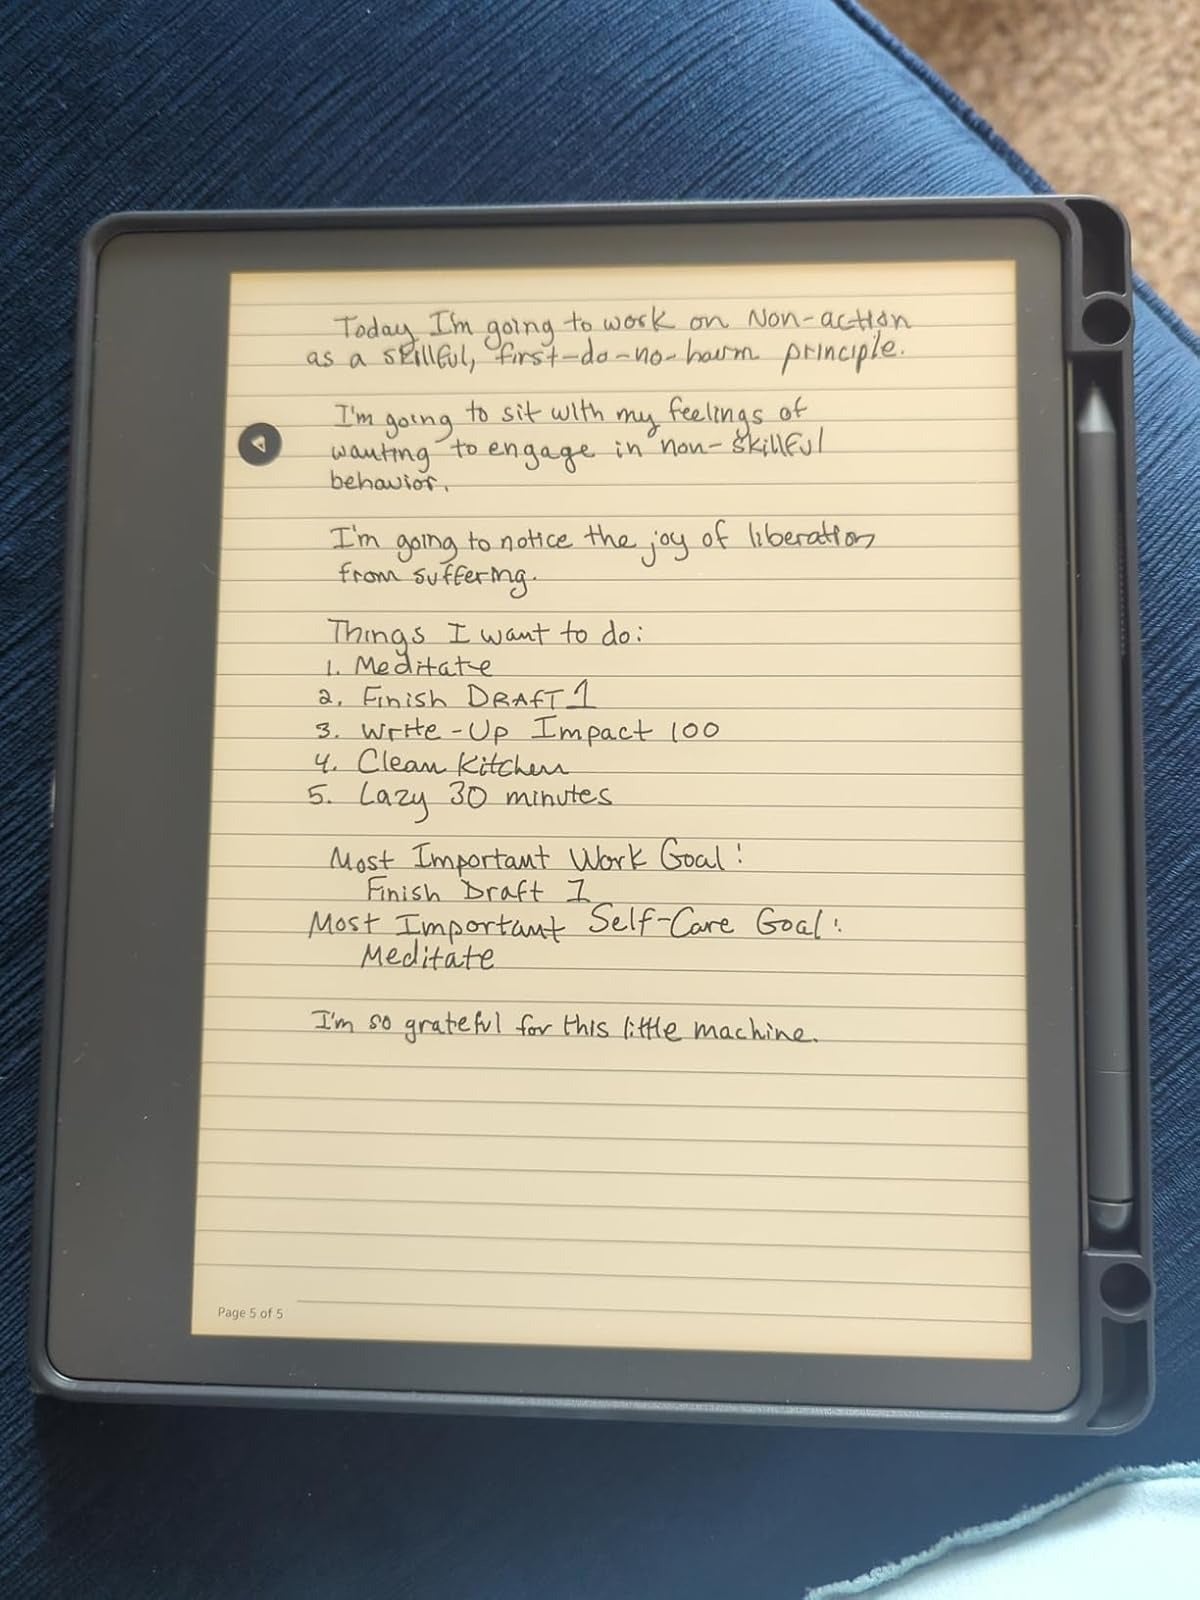 Today I'm going to work on Non-action
as a skillful, first-do-no-harm principle.
I'm going to sit with my feelings of
wanting to engage in non-skillful
behavior.
I'm going to notice the joy of liberation
from suffering.
Things I want to do:
1. Meditate
2. Finish DRAFT 1
3. Write-Up Impact 100
4. Clean Kitchen
5. Lazy 30 minutes
Most Important Work Goal:
Finish Draft 1
Most Important Self-Care Goal:
Meditate
I'm so grateful for this little machine.
Page 5 of 5